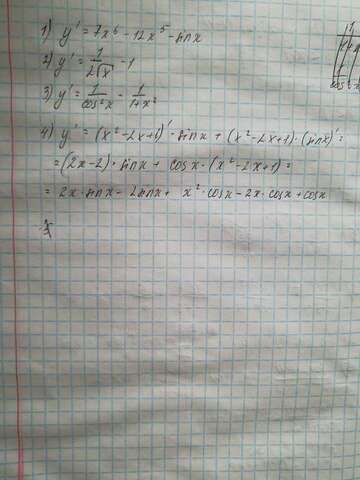 1) y' = 7x⁶ - 12x⁵ - sinx
2) y' = 1/(2√x) - 1
3) y' = 1/cos²x - 1/(1+x²)
4) y' = (x² - 2x + 1)' · sinx + (x² - 2x + 1) · (sinx)' =
= (2x - 2) · sinx + cosx · (x² - 2x + 1) =
= 2x · sinx - 2sinx + x² · cosx - 2x · cosx + cosx